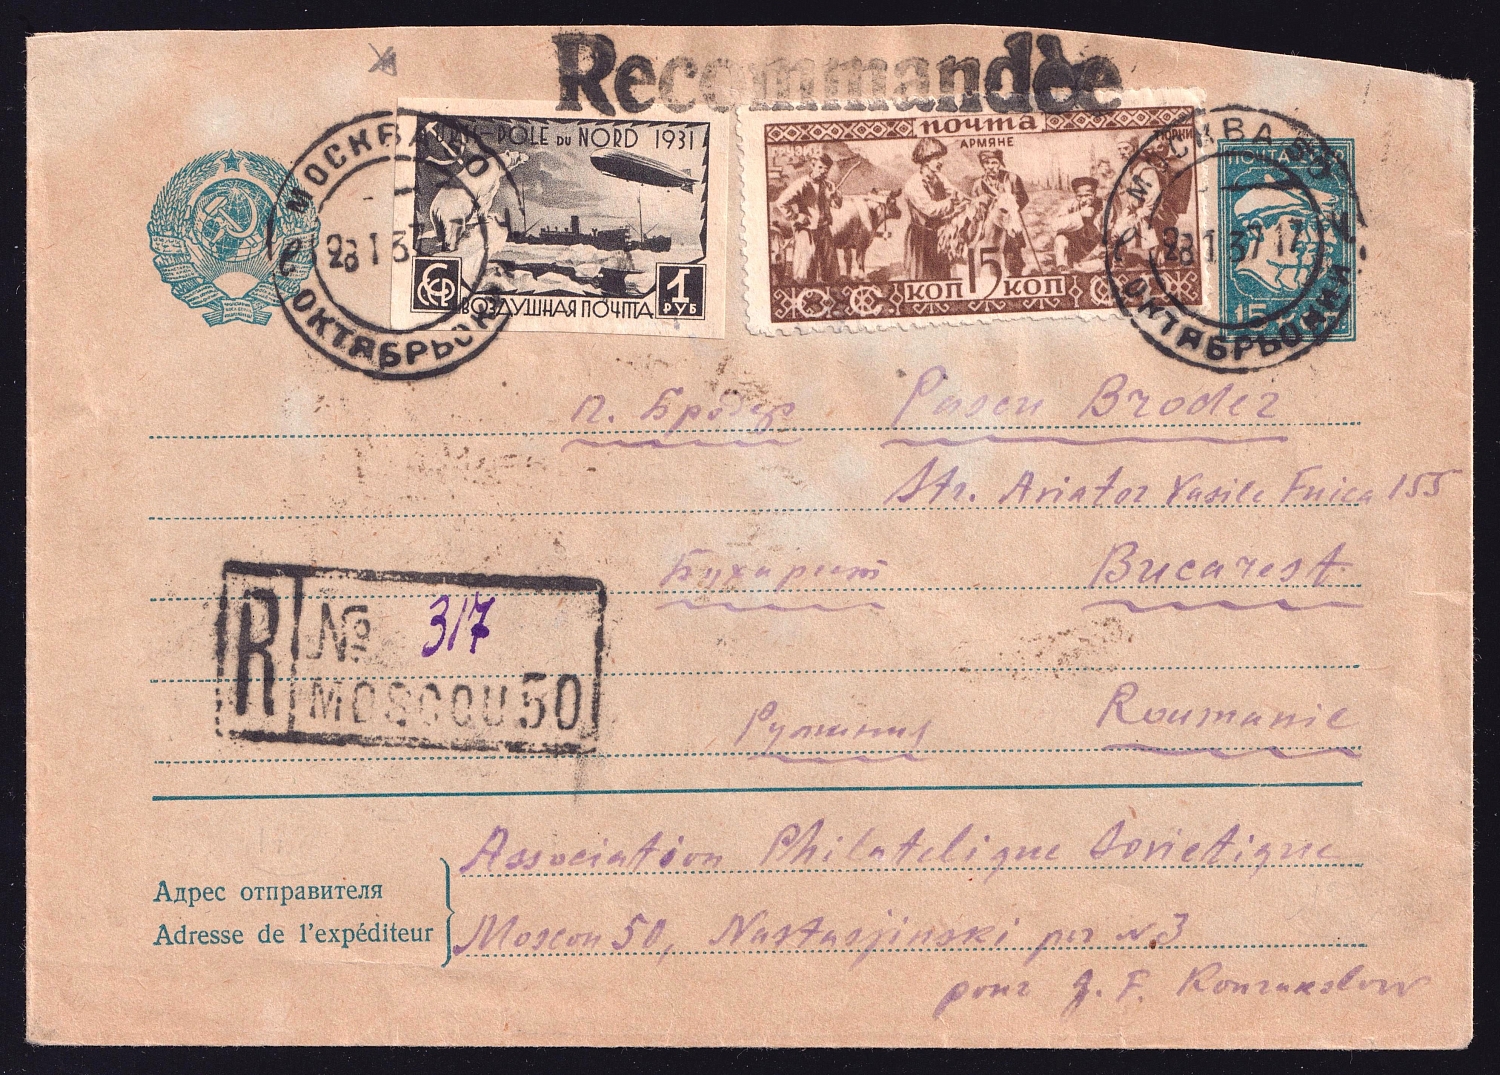 Recommandèe
POLE DU NORD 1931
ВОЗДУШНАЯ ПОЧТА
1 РУБ
почта
АРМЯНЕ
15
КОП КОП
ПОЧТА
15
МОСКВА 50
28 1 37 17
ОКТЯБРЬСК
МОСКВА 50
28 1 37 17
ОКТЯБРЬСКИЙ
П. Бродер Pascu Broder
Str. Aviator Vasile Fuica 155
Бухарест Bucarest
R № 317
MOSCOU 50
Румыния Roumanie
Association Philatelique Sovietique
Адрес отправителя
Adresse de l'expéditeur
Moscou 50, Nastasjinski per N 3
pour